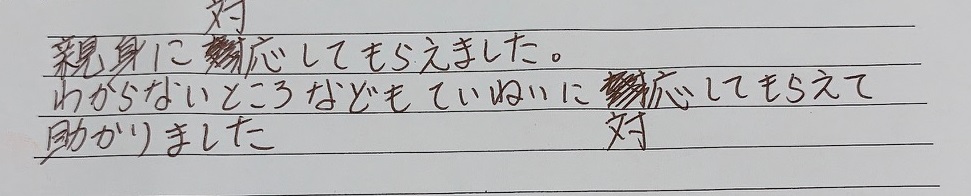 対
親身に応してもらえました。
わからないところなどもていねいに応してもらえて
対
助かりました